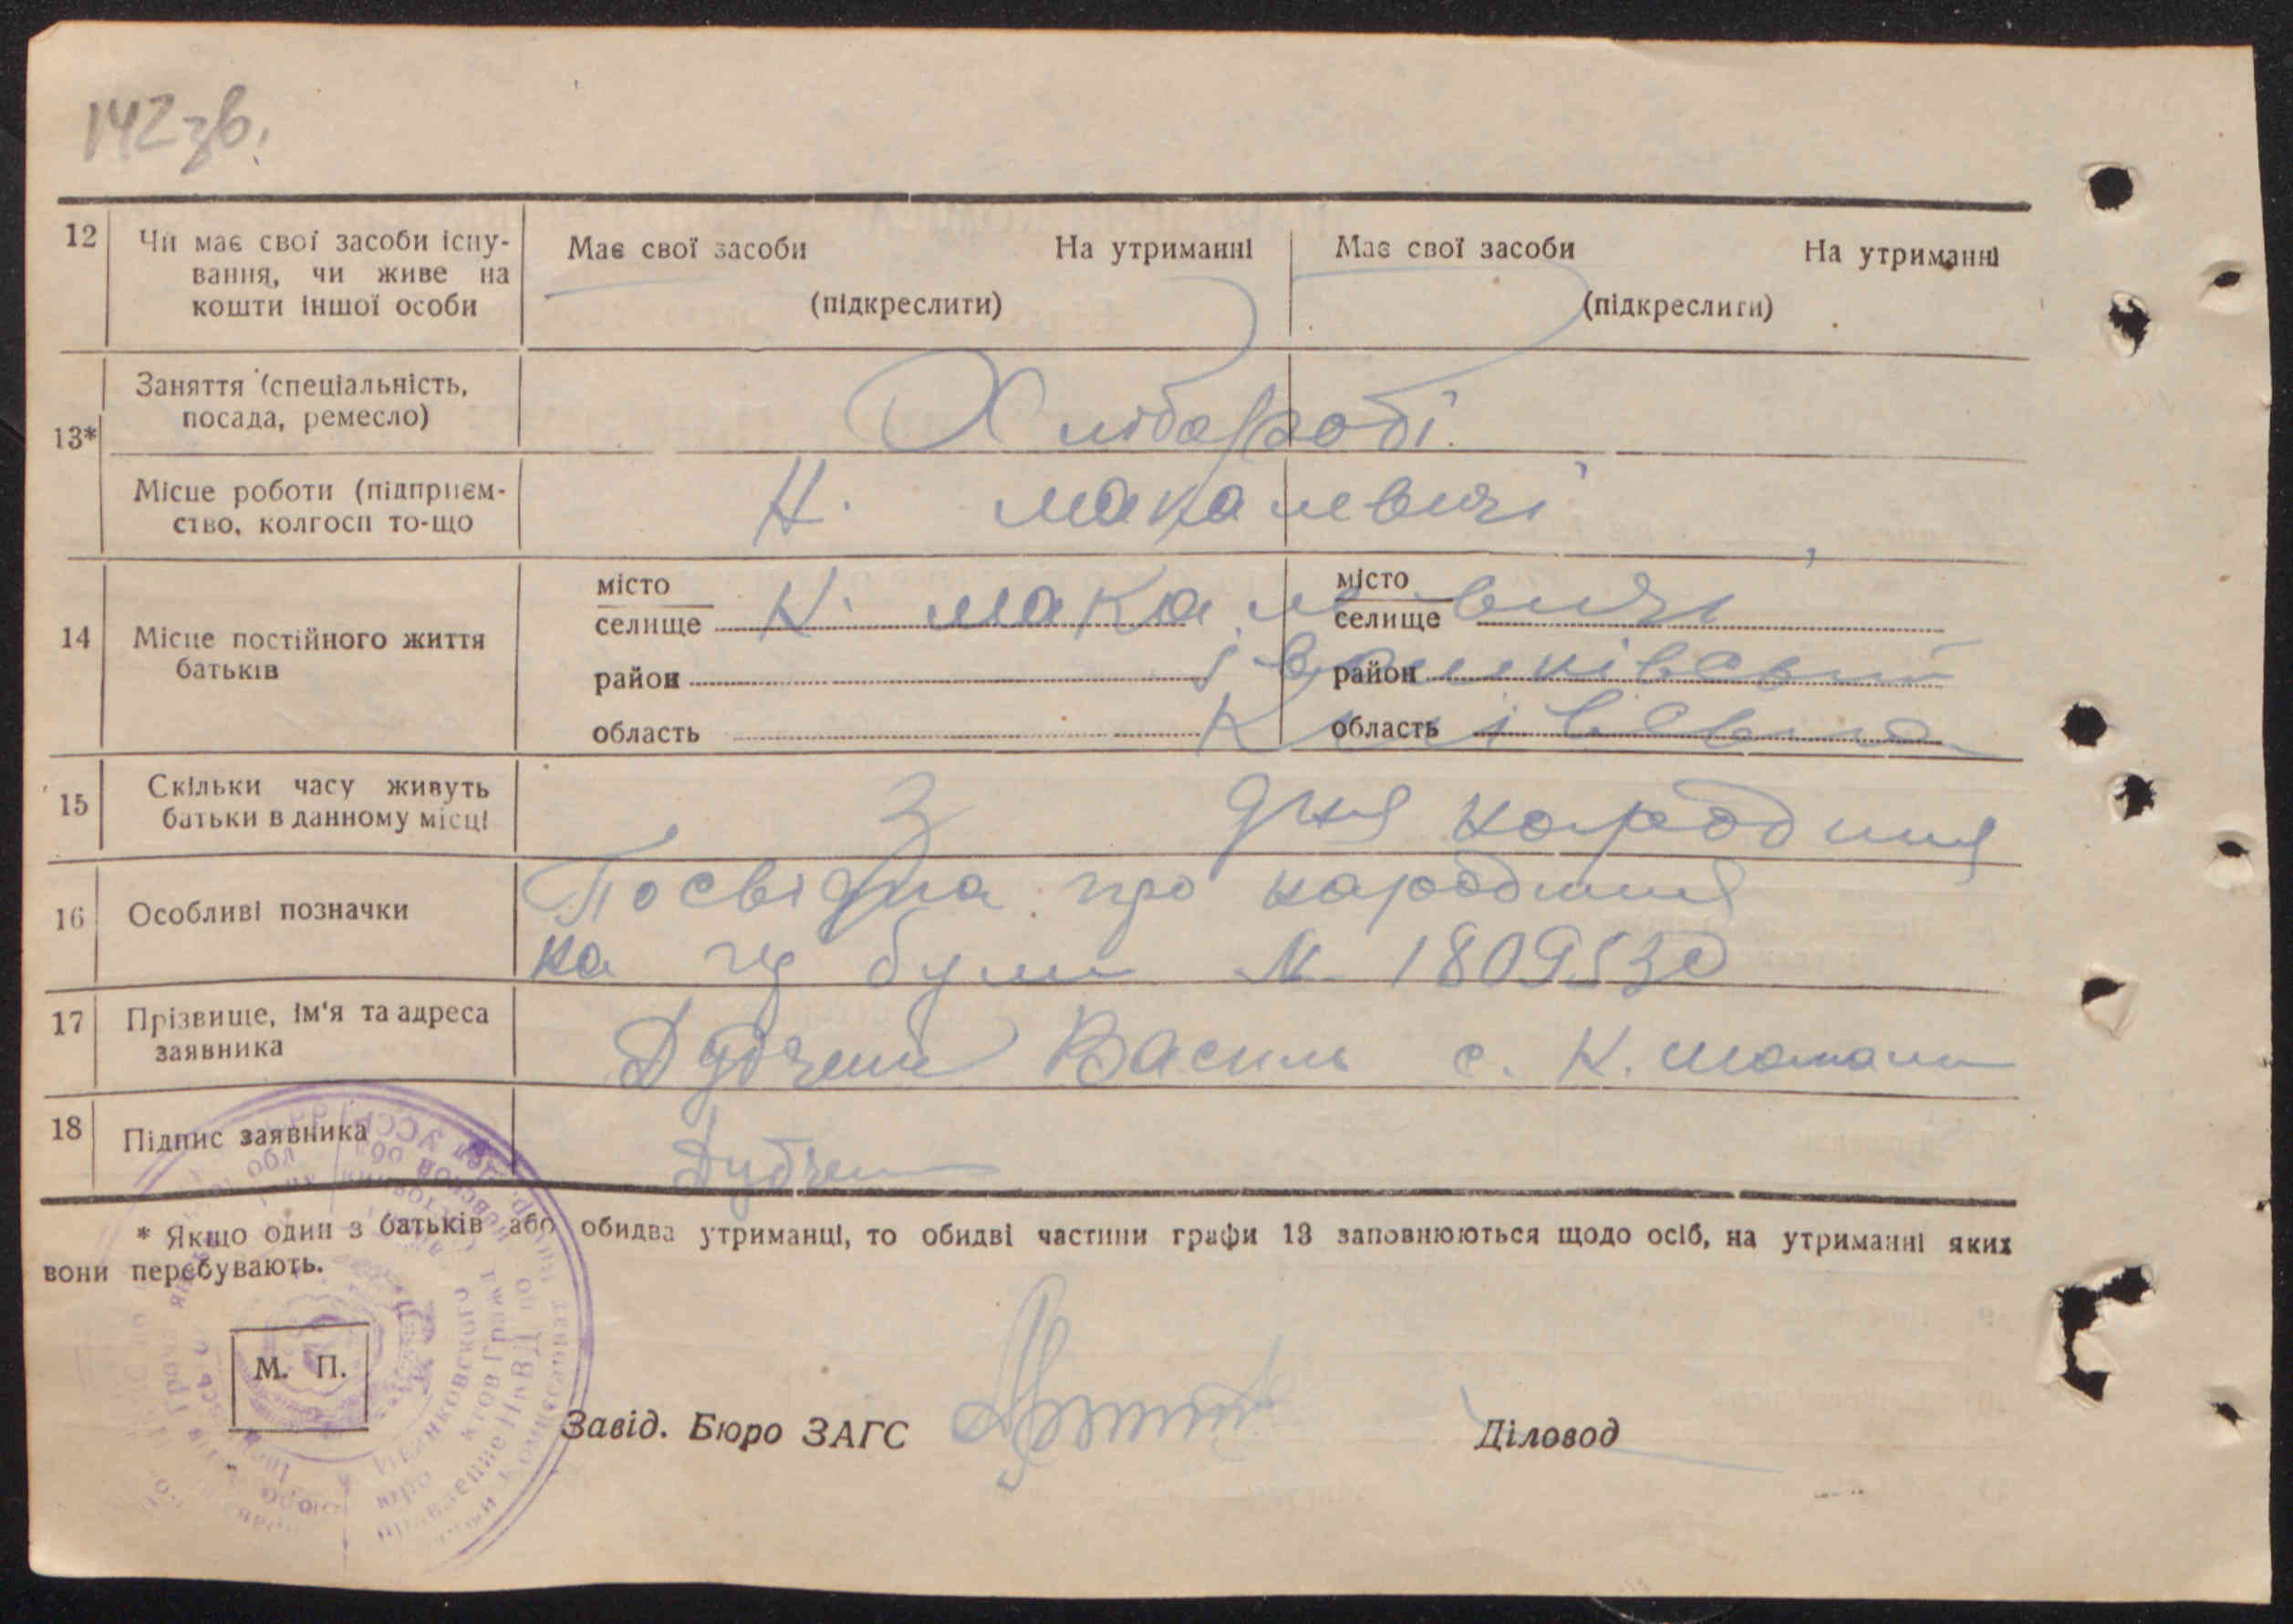 142 зв.
12 Чи має свої засоби існу-
вання, чи живе на
кошти іншої особи
Має свої засоби На утриманні
(підкреслити)
Має свої засоби На утриманні
(підкреслити)
13* Заняття (спеціальність,
посада, ремесло)
Хлібороби
Місце роботи (підприєм-
ство, колгосп то-що
Н. макалевичі
14 Місце постійного життя
батьків
місто
селище
район
область
місто
селище
район
область
Н. макалевичі
Іванківський
Київська
15 Скільки часу живуть
батьки в данному місці
З дня народиня
16 Особливі позначки
Посвідка про народиня
на № 1809530
17 Прізвище, ім'я та адреса
заявника
Василь с. Н. макали
18 Підпис заявника
* Якщо один з батьків або обидва утриманці, то обидві частини графи 13 заповнюються щодо осіб, на утриманні яких
вони перебувають.
М. П.
Завід. Бюро ЗАГС
Діловод